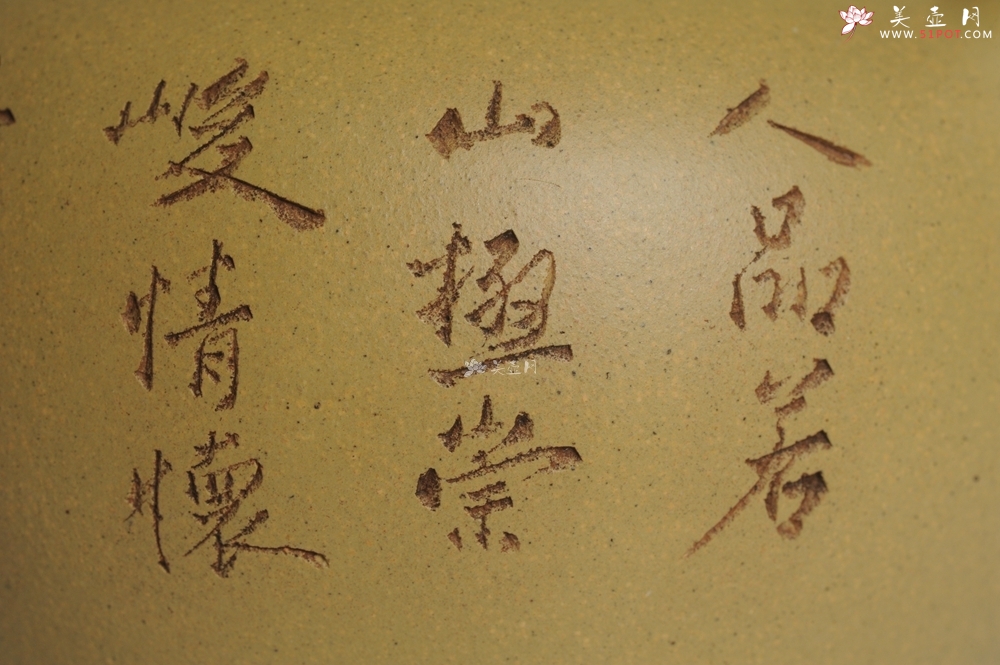 人品若
山極崇
峻情懷
美壶网
WWW.51POT.COM
美壶网